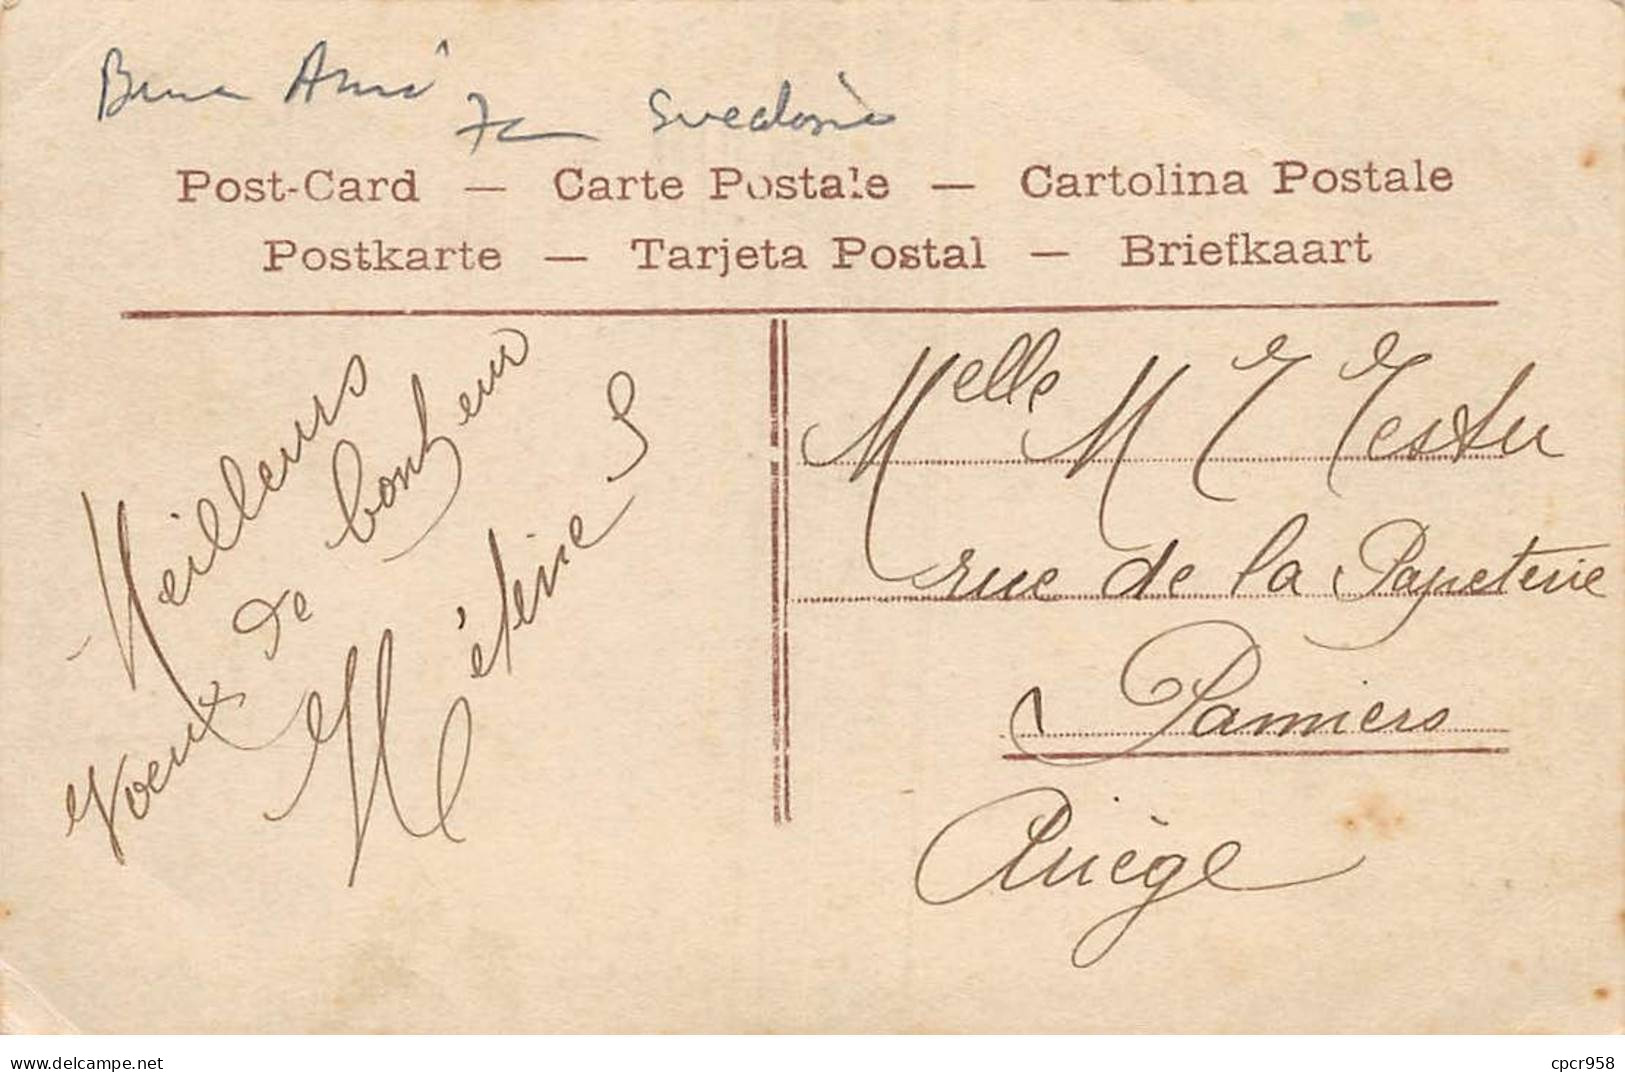 Post-Card — Carte Postale — Cartolina Postale
Postkarte — Tarjeta Postal — Briefkaart
Meilleurs
voeux de bonheur
Melle M T Testu
rue de la Papeterie
Pamiers
Ariège
www.delcampe.net
cpcr958